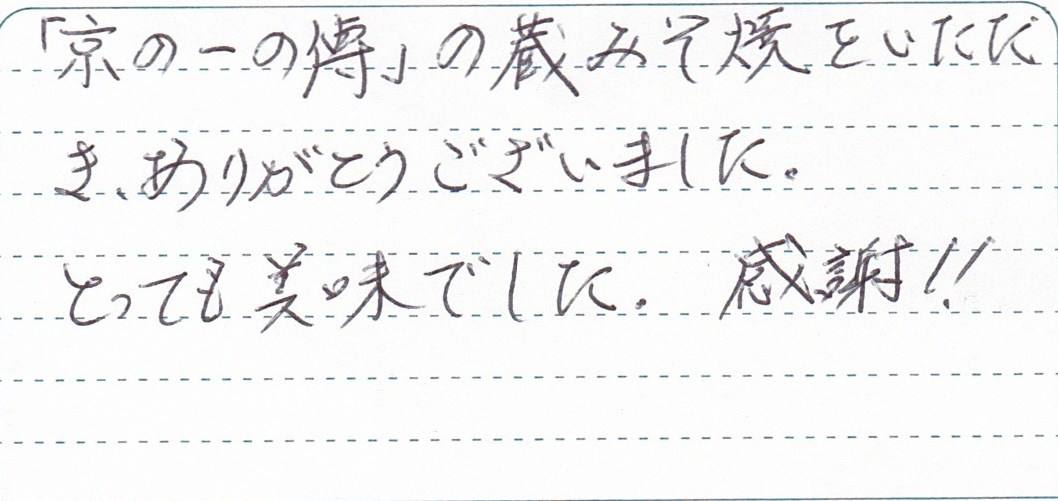 「京の一の傅」の蔵みそ焼をいただ
き、ありがとうございました。
とっても美味でした。 感謝!!